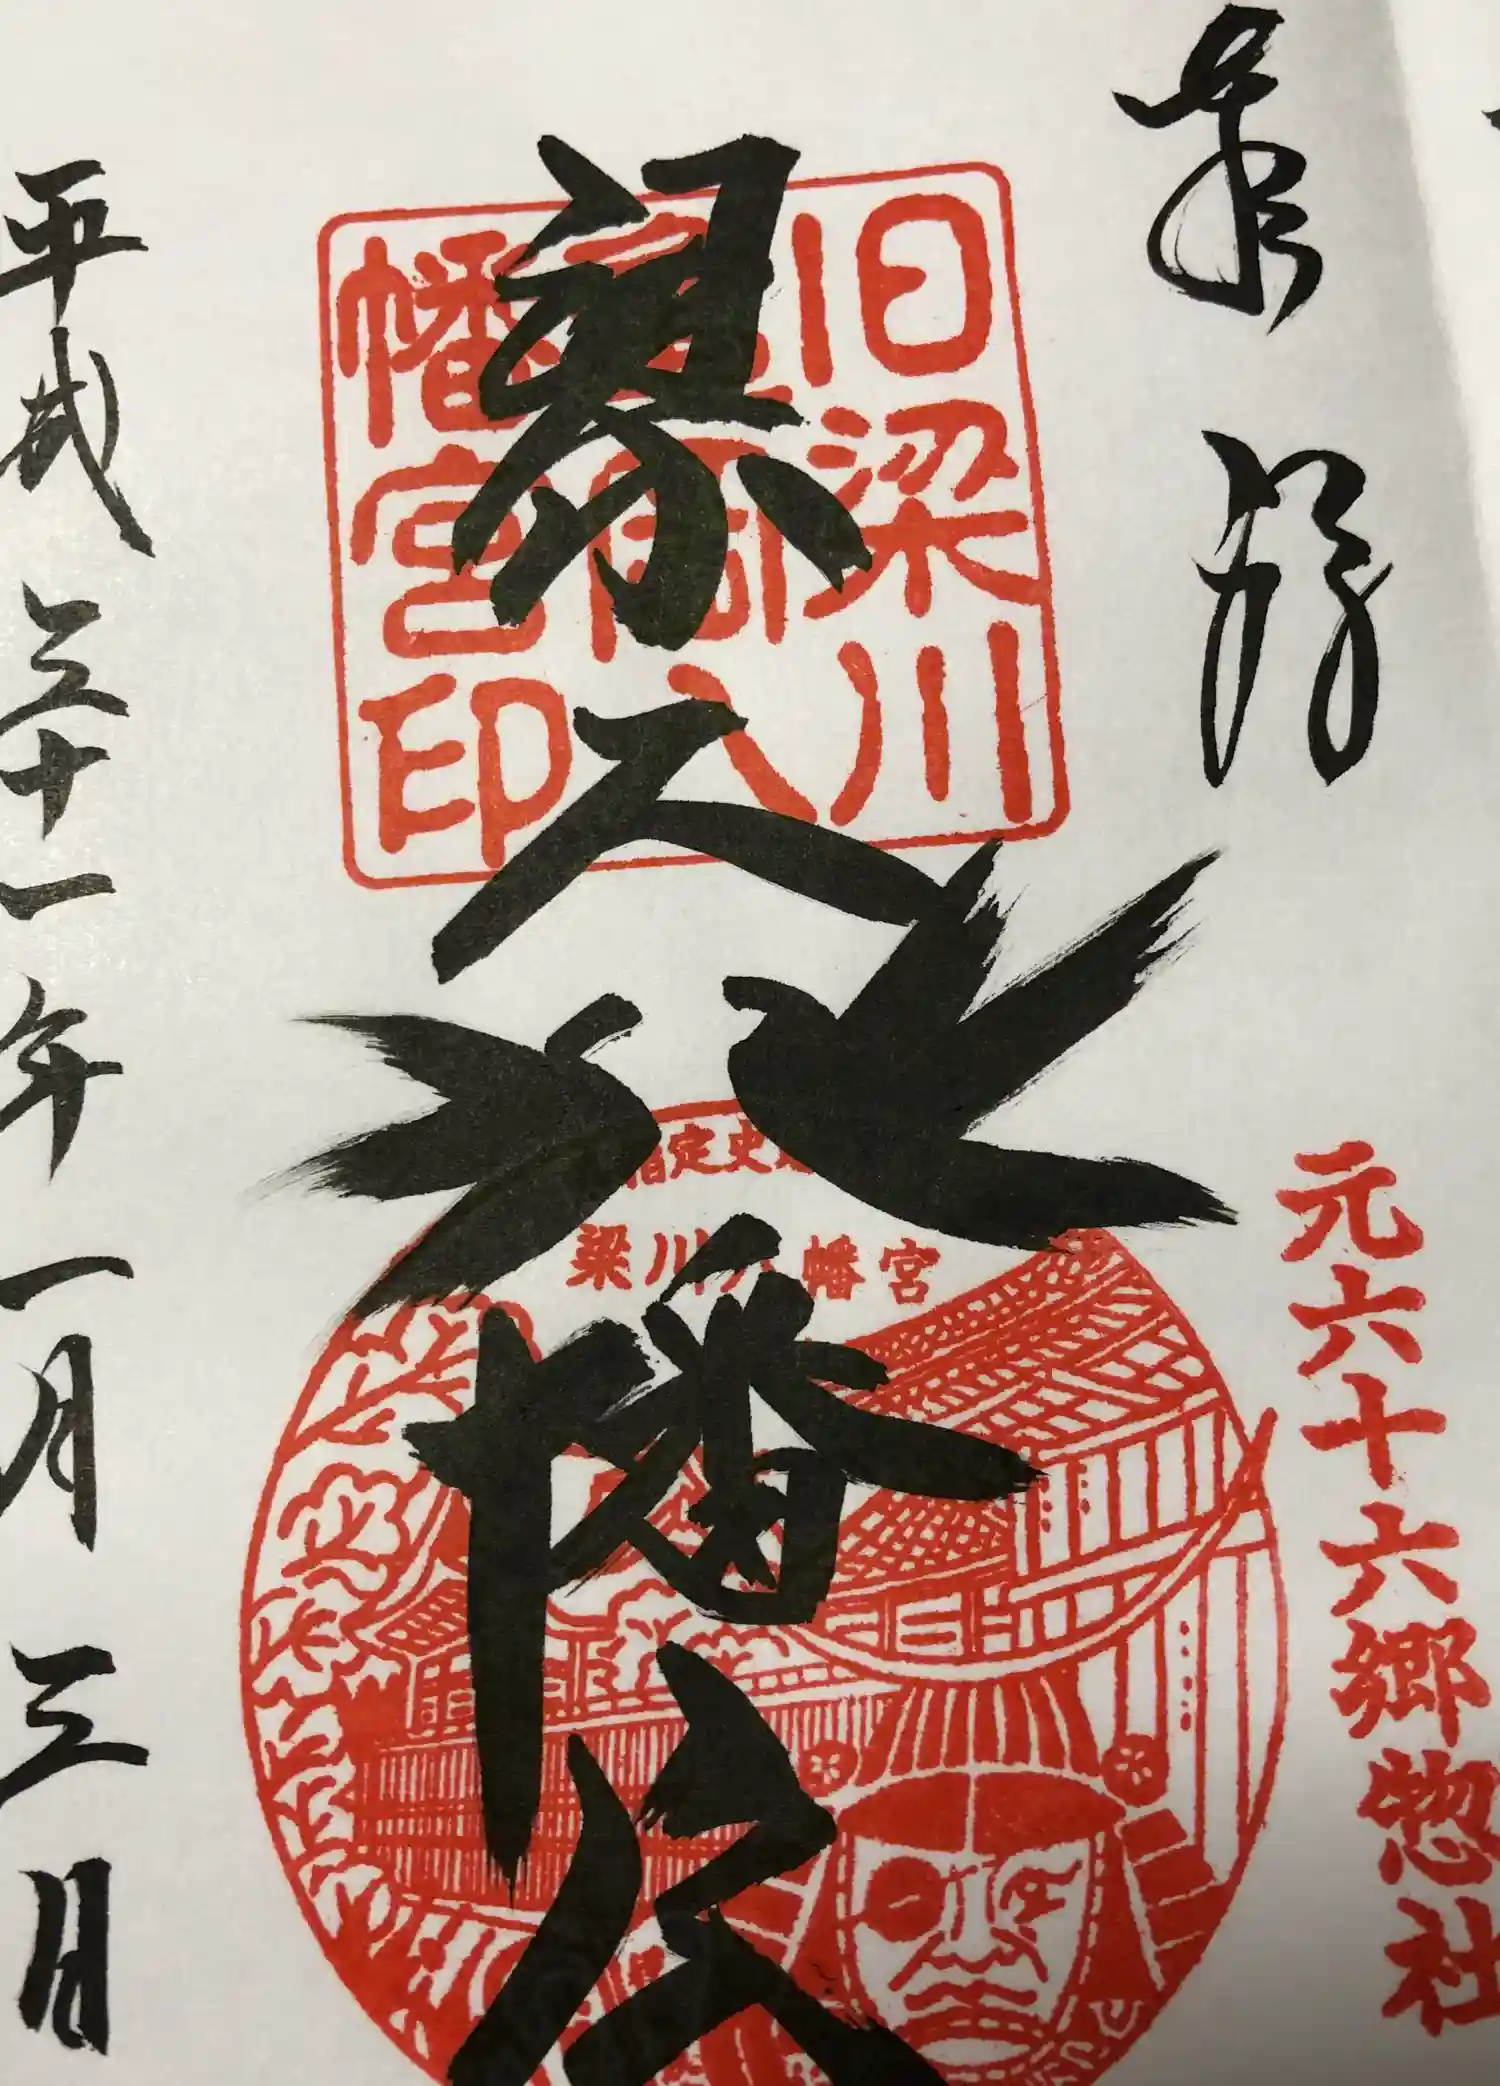 奉拝
元六十六郷惣社
旧梁川
亀岡八
幡宮印
梁川八幡宮
指定史
梁川八幡宮
平成三十一年一月三日